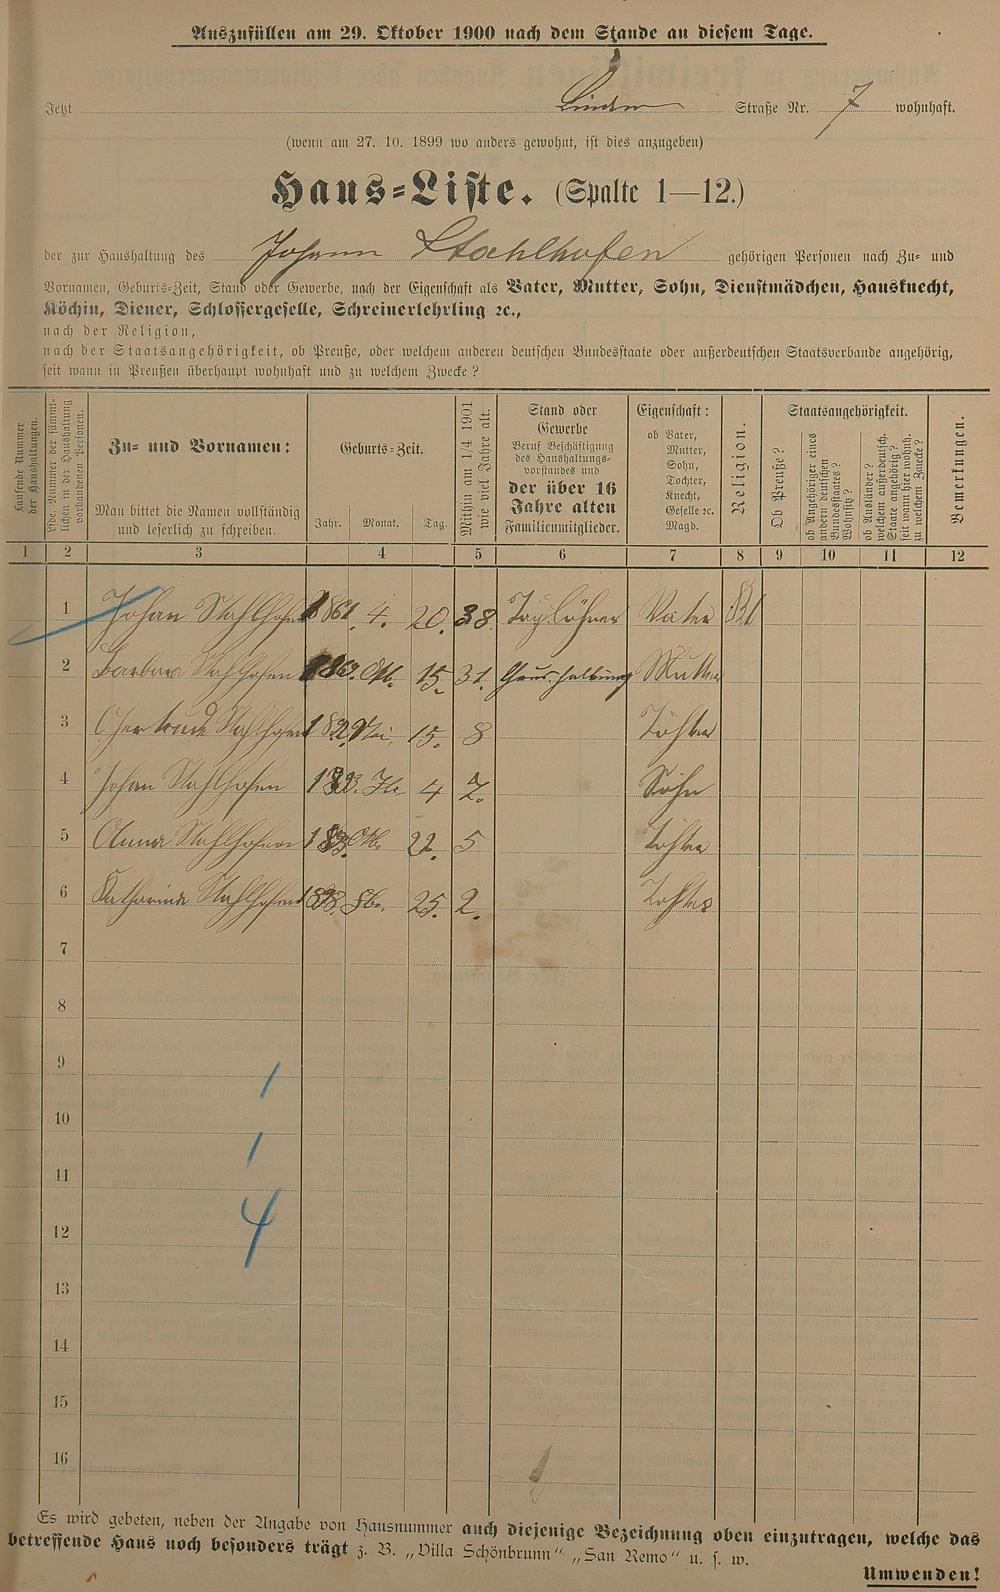 Auszufüllen am 29. Oktober 1900 nach dem Stande an diesem Tage.
Jetzt Linden Straße Nr. 7 wohnhaft.
(wenn am 27. 10. 1899 wo anders gewohnt, ist dies anzugeben)
Haus-Liste. (Spalte 1—12.)
der zur Haushaltung des Johann Stahlhofen gehörigen Personen nach Zu- und
Vornamen, Geburts-Zeit, Stand oder Gewerbe, nach der Eigenschaft als Vater, Mutter, Sohn, Dienstmädchen, Hausknecht,
Köchin, Diener, Schlossergeselle, Schreinerlehrling ꝛc.,
nach der Religion,
nach der Staatsangehörigkeit, ob Preuße, oder welchem anderen deutschen Bundesstaate oder außerdeutschen Staatsverbande angehörig,
seit wann in Preußen überhaupt wohnhaft und zu welchem Zwecke?
Laufende Nummer
der Haushaltungen.
Lfde. Nummer der sämmt-
lichen in der Haushaltung
vorhandenen Personen.
Zu- und Vornamen:
Man bittet die Namen vollständig
und leserlich zu schreiben.
Geburts-Zeit.
Jahr. Monat. Tag.
Mithin am 1/4 1901
wie viel Jahre alt.
Stand oder
Gewerbe
Beruf Beschäftigung
des Haushaltungs-
vorstandes und
der über 16
Jahre alten
Familienmitglieder.
Eigenschaft:
ob Vater,
Mutter,
Sohn,
Tochter,
Knecht,
Geselle ꝛc.
Magd.
Religion.
Staatsangehörigkeit.
Ob Preuße?
ob Angehöriger eines
andern deutschen
Bundesstaates?
Wohnsitz?
ob Ausländer?
welchem außerdeutsch.
Staate angehörig?
seit wann hier wohnh.
zu welchem Zwecke?
Bemerkungen.
1 2 3 4 5 6 7 8 9 10 11 12
1 Johan Stahlhofen 1861. 4. 20. 38. Taglöhner Vater
2 Barbara Stahlhofen Okt. 15. 31. Haushaltung Mutter
3 Gertrud Stahlhofen Mai. 15. 8 Tochter
4 Johan Stahlhofen 4 7. Sohn
5 Anna Stahlhofen Okt. 22. 5 Tochter
6 Katharina Stahlhofen 1898. 25. 2. Tochter
7
8
9
1
10
1
11
4
12
13
14
15
16
Es wird gebeten, neben der Angabe von Hausnummer auch diejenige Bezeichnung oben einzutragen, welche das
betreffende Haus noch besonders trägt z. B. „Villa Schönbrunn“ „San Remo“ u. s. w.
Umwenden!